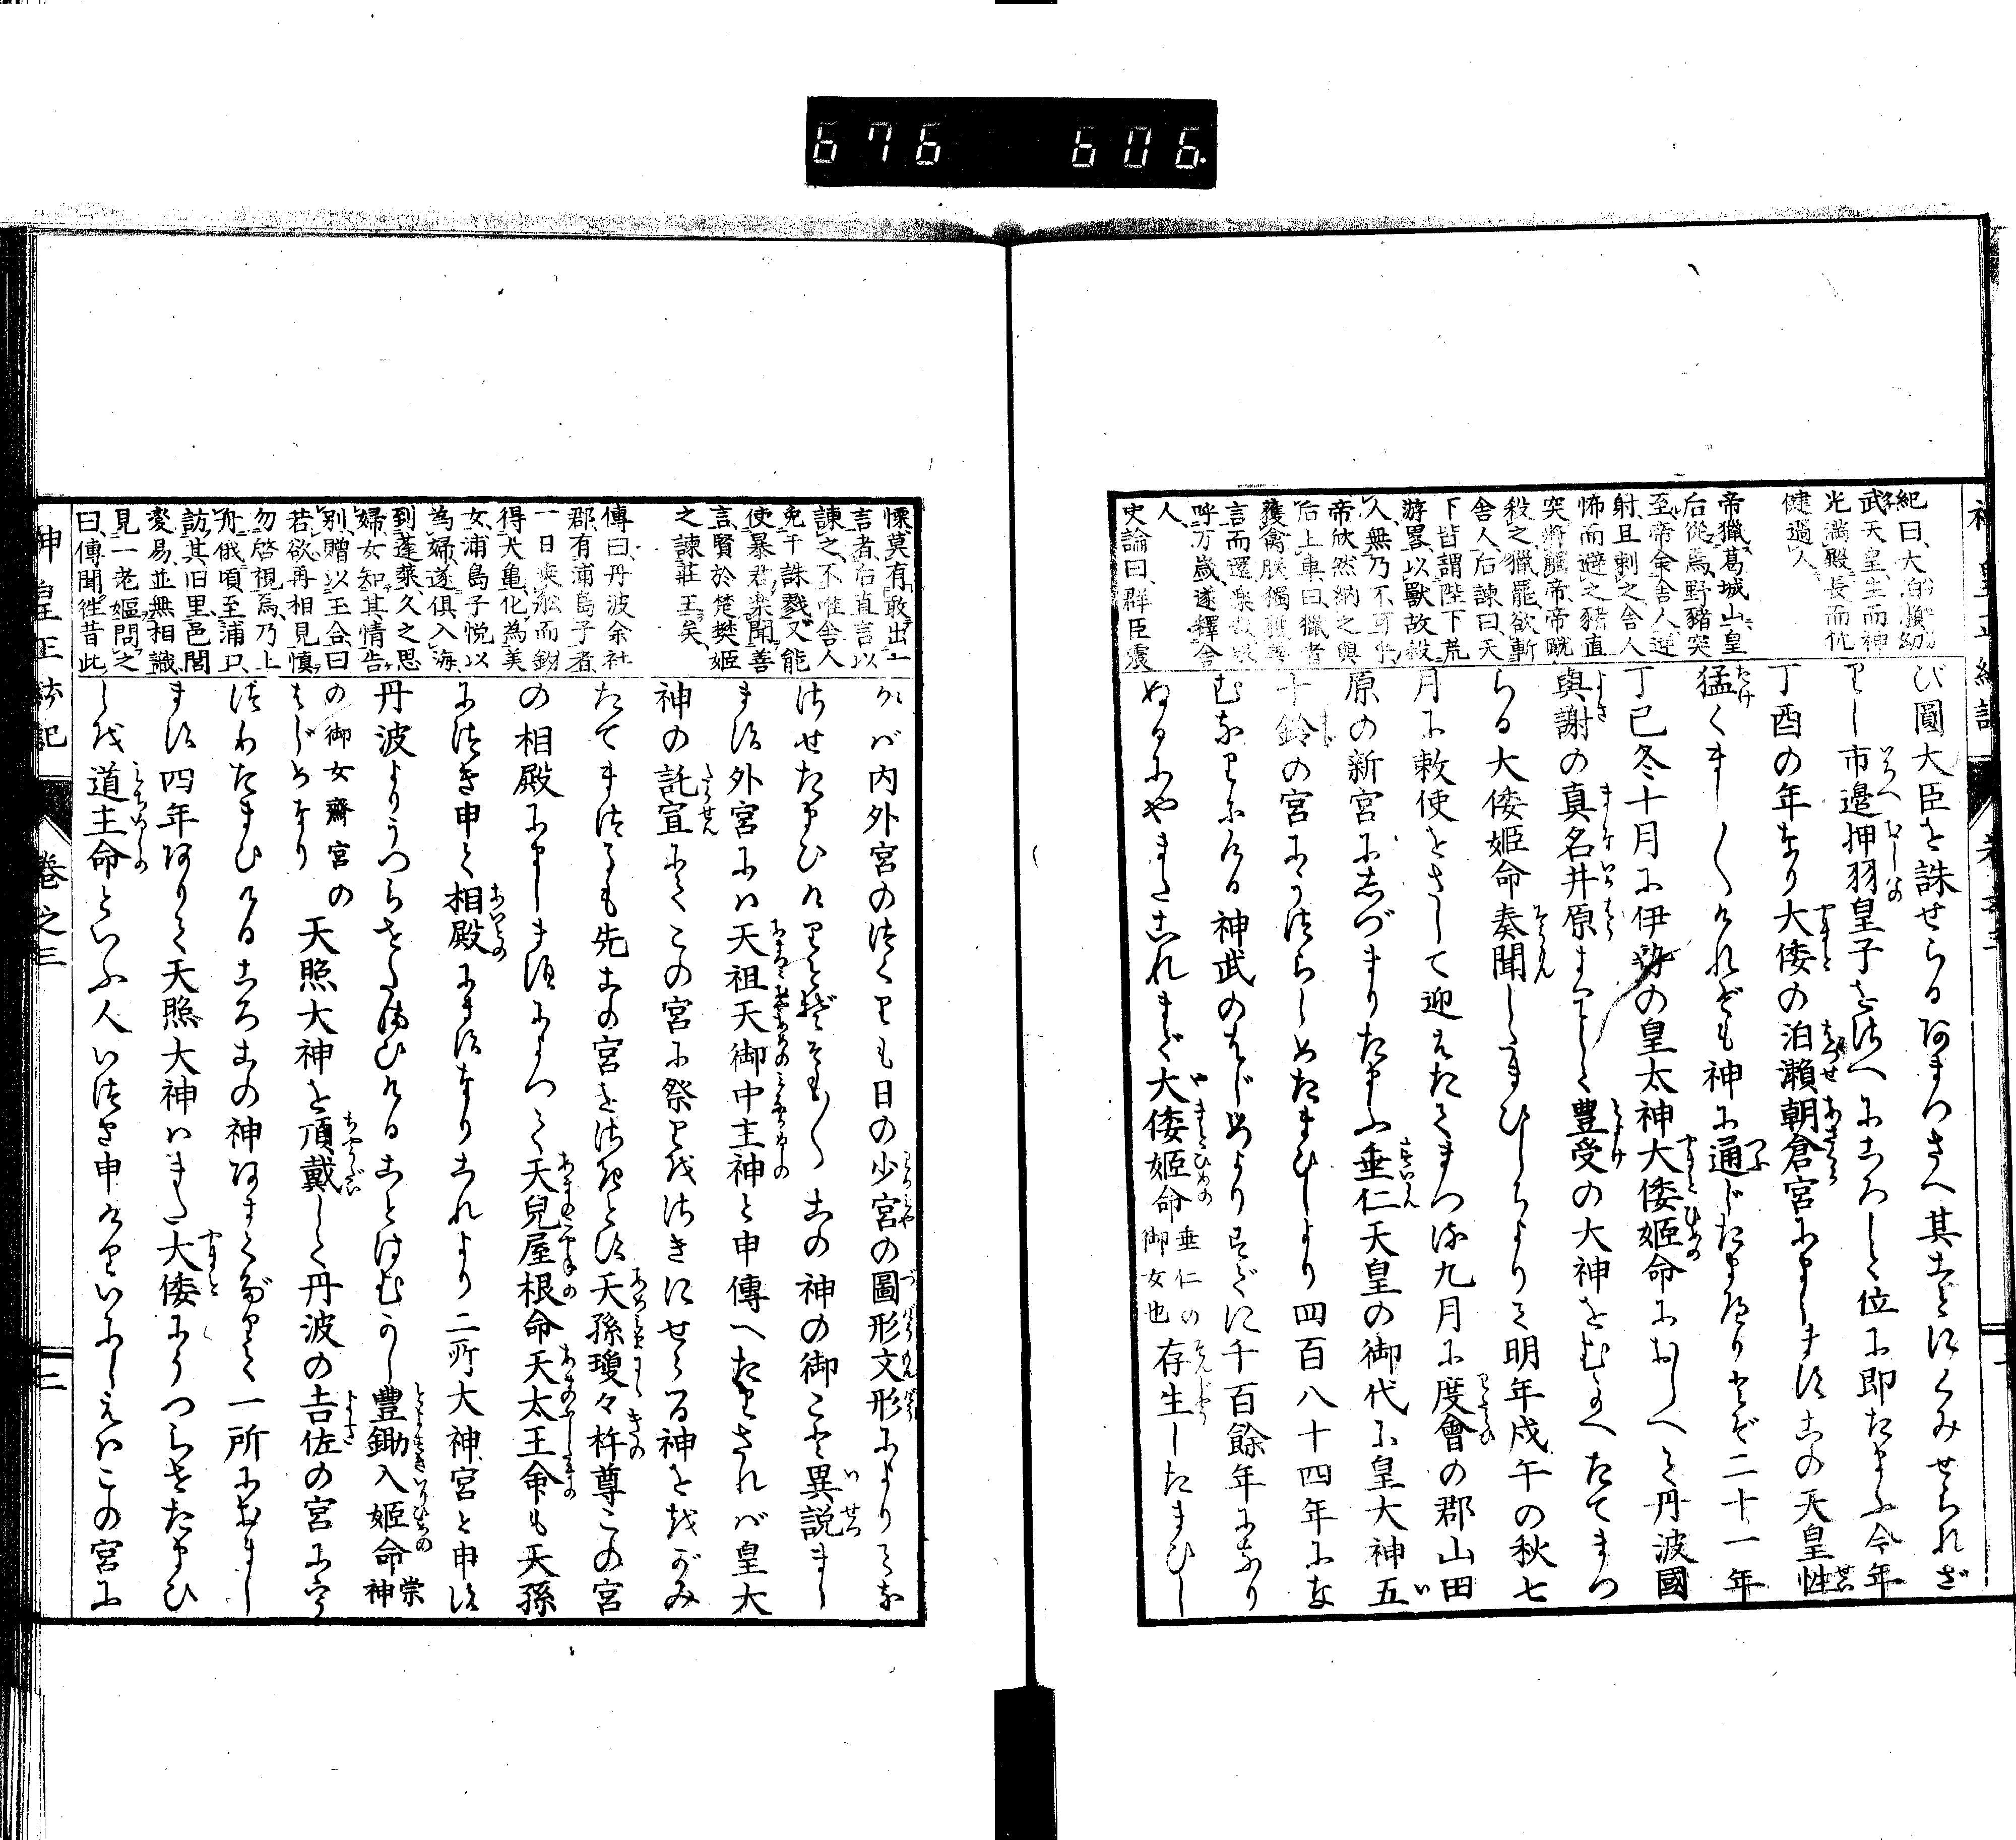 676 606.
紀曰、大泊瀬幼
武天皇、生而神
光満殿、長而伉
健過人、
帝獵葛城山、皇
后從焉、野豬突
至、帝命舍人逆
射、且刺之、舍人
怖而避之、豬直
突將齧帝、帝
殺之、獵罷、欲斬
舍人、后諫曰、天
下皆謂陛下荒
游畧、以獸故殺
人、無乃不可乎、
帝欣然納之、與
后上車曰、獵者
獲禽、朕獨獲善
言而還、
呼万歳、遂釋舍
人、
史論曰、群臣震
び圓大臣を誅せらるあまつさへ其こときくみせられざ
りし市邉押羽皇子を佐へにころして位に即たまふ今年
丁酉の年なり大倭の泊瀬朝倉宮にましますこの天皇性
猛くましましけれども神に通じたまへりとぞ二十一年
丁巳冬十月に伊勢の皇太神大倭姫命におしへて丹波國
與謝の真名井原よりして豊受の大神をむかへたてまつ
らる大倭姫命奏聞したまひしによりて明年戊午の秋七
月に敕使をさして迎えたてまつる九月に度會の郡山田
原の新宮にしづまりたまふ垂仁天皇の御代に皇大神五
十鈴の宮にうつらしめたまひしより四百八十四年にな
むなりにける神武のはじめよりすでに千百餘年になり
ぬるにやまたこれまで大倭姫命垂仁の御女也存生したまひし
慄、莫有敢出一
言者、后直言以
諫之、不唯舍人
免于誅戮、又能
使暴君楽聞善
言、賢於楚樊姫
之諫莊王矣、
傳曰、丹波余社
郡、有浦島子者、
一日乘舩而釣、
得大亀、化為美
女、浦島子悦以
為婦、遂俱入海、
到蓬萊、久之思
婦、女知其情、告
別、贈以玉合曰、
若欲再相見、慎
勿啓視焉、乃上
舟、俄頃至浦口、
訪其旧里、邑閭
変易、並無相識、
見一老嫗問之、
曰、傳聞徃昔此
かバ内外宮のつくりも日の少宮の圖形文形によりてな
させたまひけりとぞそもそもこの神の御こと異説まし
ます外宮にハ天祖天御中主神と申傳へたりされバ皇大
神の託宣にてこの宮に祭りをさきにせらる神をおがみ
たてまつるも先この宮をさきとす天孫瓊々杵尊この宮
の相殿にましますによつて天兒屋根命天太玉命も天孫
につき申て相殿にますなりこれより二所大神宮と申す
丹波よりうつらせたまひけることはむかし豊鋤入姫命崇神
の御女齋宮のはじめなり天照大神を頂戴して丹波の吉佐の宮にう
つりたまひけるころこの神あまくだりて一所におまし
ます四年ありて天照大神ハまた大倭にうつらせたまひ
しを道主命といふ人いつき申けりいにしえハこの宮に
神皇正統記 巻之三 二